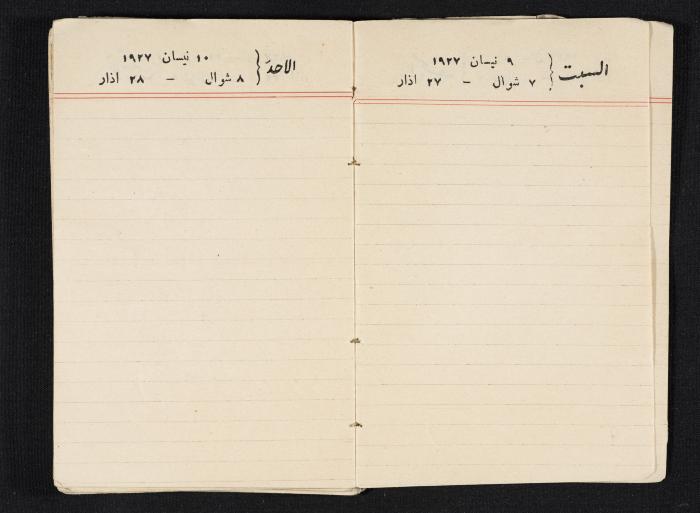 السبت
٩ نيسان ١٩٢٧
٧ شوال – ٢٧ اذار
الاحد
١٠ نيسان ١٩٢٧
٨ شوال – ٢٨ اذار